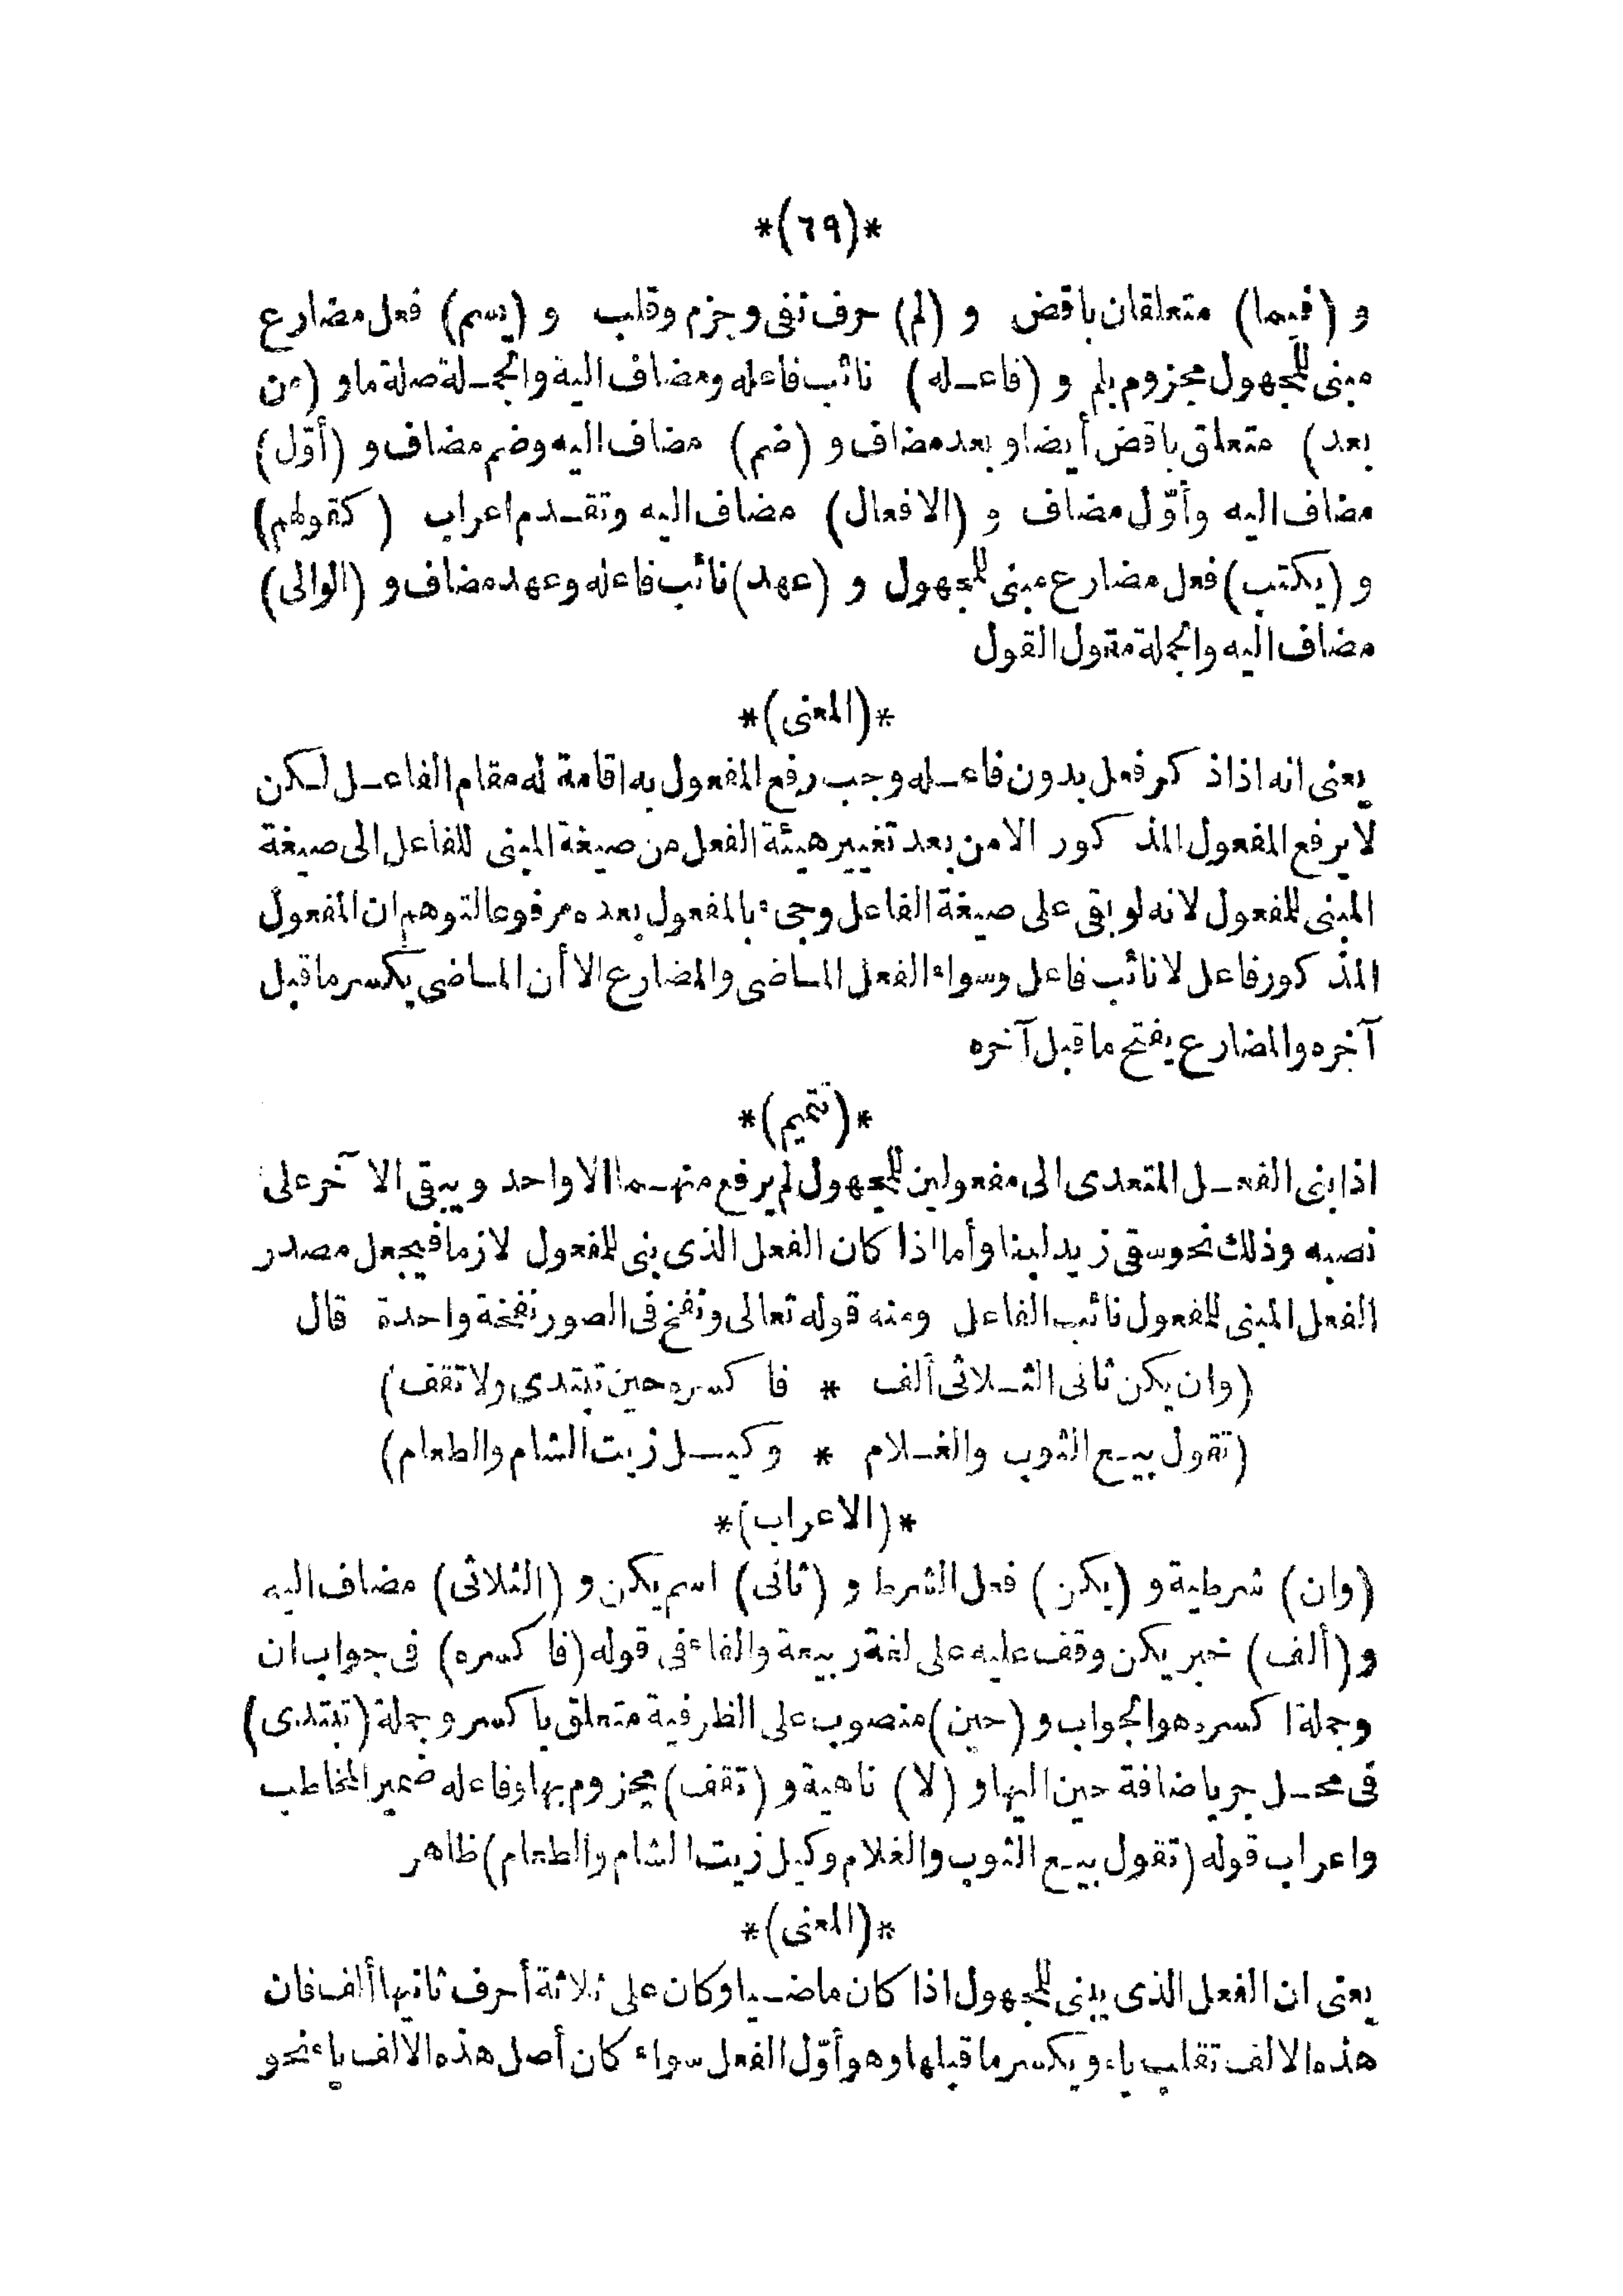 *(٦٩)*
و (فيما) متعلقان باقض و (لم) حرف نفى وجزم وقلب و (يسم) فعل مضارع
مبنى للمجهول مجزوم بلم و (فاعـله) نائب فاعله ومضاف الية والجـلة صلة ما و (من
بعد) متعلق باقض أيضا و بعد مضاف و (ضم) مضاف اليه وضم مضاف و (أوّل)
مضاف اليه وأوّل مضاف و (الافعال) مضاف اليه وتقـدم اعراب (كقولهم)
و (يكتب) فعل مضارع مبنى للمجهول و (عهد) نائب فاعله وعهد مضاف و (الوالى)
مضاف اليه والجملة مقول القول
*(المعنى)*
يعنى انه اذا ذكر فعل بدون فاعـله وجب رفع المفعول به اقامة له مقام الفاعـل لـكن
لا يرفع المفعول المذكور الا من بعد تغيير هيئة الفعل من صيغة المبنى للفاعل الى صيغة
المبنى للمفعول لانه لو بقى على صيغة الفاعل وجىء بالمفعول بعده مرفوعا لتوهم ان المفعول
المذكور فاعل لا نائب فاعل وسواء الفعل المـاضى والمضارع الا أن المـاضى يكسر ما قبل
آخره والمضارع يفتح ما قبل آخره
*(تتميم)*
اذا بنى الفعـل المتعدى الى مفعولين للمجهول لم يرفع منهـما الا واحد ويبقى الآخر على
نصبه وذلك نحو سقى زيد لبنا وأما اذا كان الفعل الذى بنى للمفعول لازما فيجعل مصدر
الفعل المبنى للمفعول نائب الفاعل ومنه قوله تعالى ونفخ فى الصور نفخة واحدة قال
(وان يكن ثانى الثـلاثى ألف * فاكسره حين تبتدى ولا تقف)
(تقول بيـع الثوب والغـلام * وكيـل زيت الشام والطعام)
*(الاعراب)*
(وان) شرطية و (يكن) فعل الشرط و (ثانى) اسم يكن و (الثلاثى) مضاف اليه
و (ألف) خبر يكن وقف عليه على لغة ربيعة والفاء فى قوله (فاكسره) فى جواب ان
وجملة اكسره هو الجواب و (حين) منصوب على الظرفية متعلق باكسر وجملة (تبتدى)
فى محـل جر باضافة حين اليها و (لا) ناهية و (تقف) مجزوم بها وفاعله ضمير المخاطب
واعراب قوله (تقول بيـع الثوب والغلام وكيل زيت الشام والطعام) ظاهر
*(المعنى)*
يعنى ان الفعل الذى يبنى للمجهول اذا كان ماضـيا وكان على ثلاثة أحرف ثانيها ألف فان
هذه الالف تقلب ياء ويكسر ما قبلها وهو أوّل الفعل سواء كان أصل هذه الالف ياء نحو